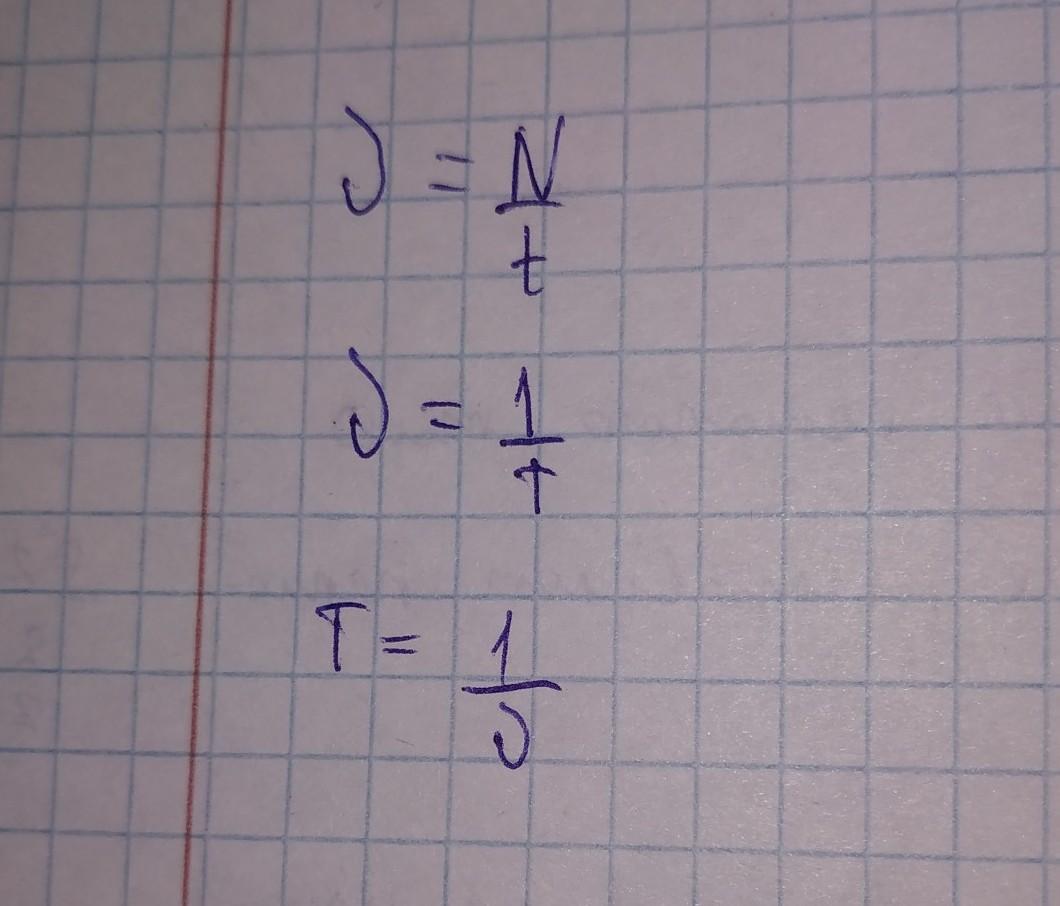 ν = N/t
ν = 1/T
T = 1/ν